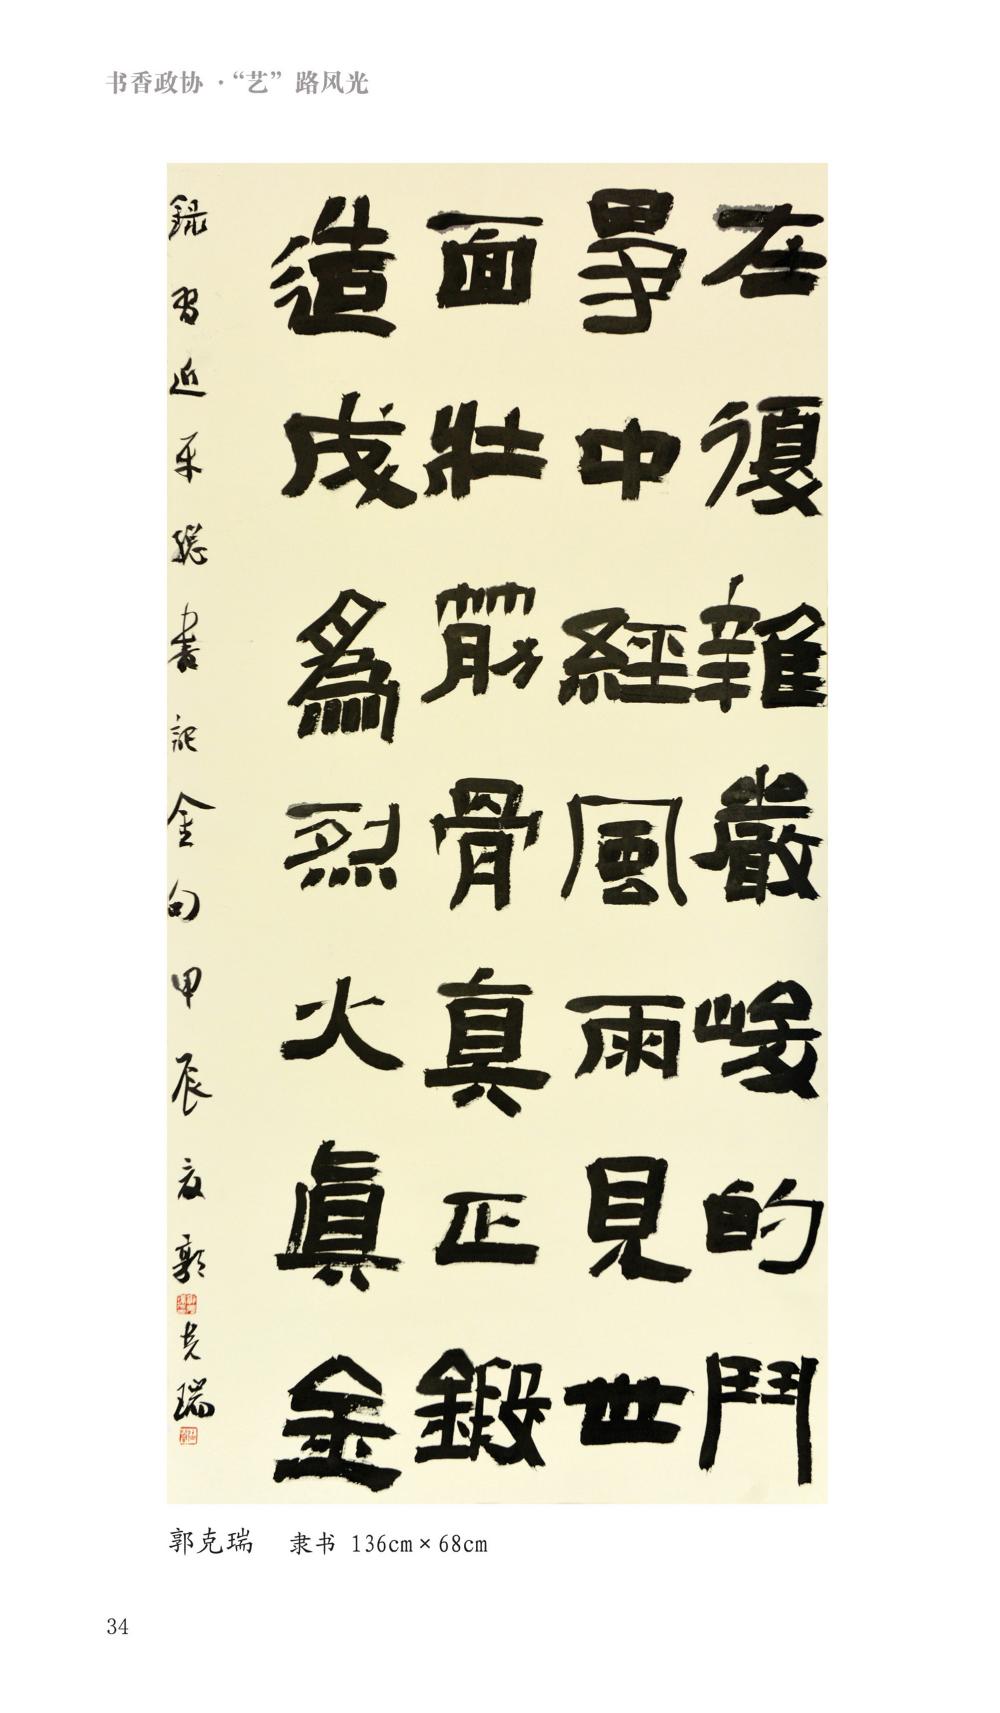 书香政协 ·“艺”路风光
在復雜嚴峻的鬥
爭中經風雨見世
面壯筋骨真正鍛
造成爲烈火眞金
録習近平總書記金句甲辰夏郭克瑞
郭克瑞 隶书 136cm×68cm
34